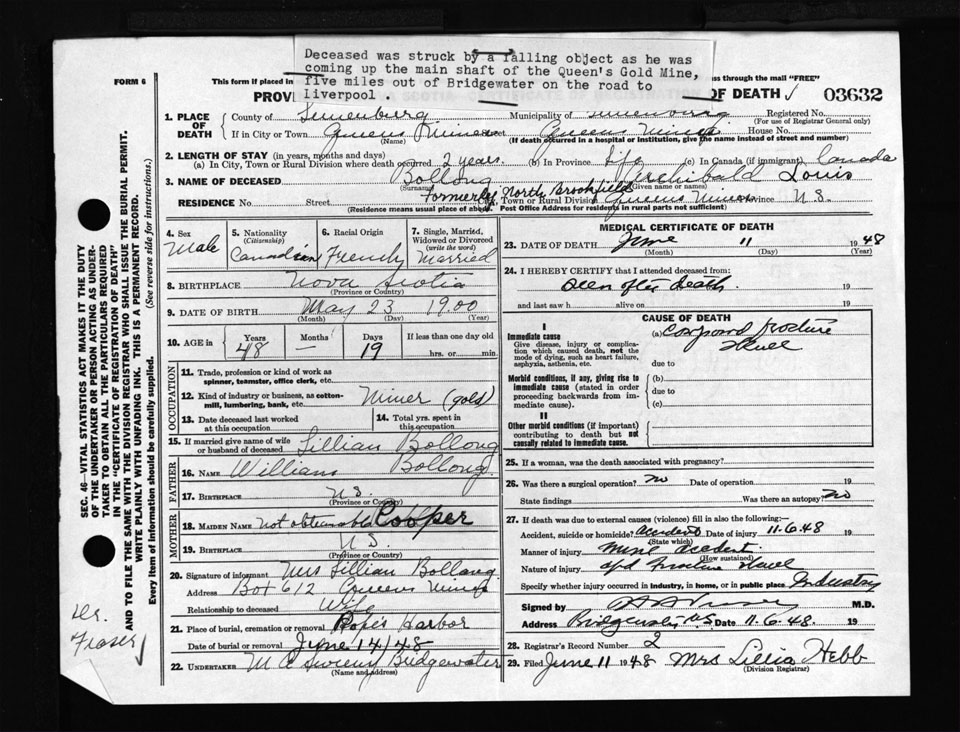 Deceased was struck by a falling object as he was
coming up the main shaft of the Queen's Gold Mine,
five miles out of Bridgewater on the road to
liverpool .
FORM 6
This form if placed in
ss through the mail "FREE"
PROV
OF DEATH
03632
1. PLACE OF DEATH
County of Lunenburg
Municipality of Lunenburg
Registered No.
(For use of Registrar General only)
If in City or Town Queens Mines
(Name)
Street Queens Mines House No.
(If death occurred in a hospital or institution, give the name instead of street and number)
2. LENGTH OF STAY (in years, months and days)
(a) In City, Town or Rural Division where death occurred 2 years. (b) In Province Life (c) In Canada (if immigrant) Canada
3. NAME OF DECEASED Bollong Archibald Louis
(Surname) (Given name or names)
Formerly North Brookfield
RESIDENCE No. Street City, Town or Rural Division Queens Mines Province N.S.
(Residence means usual place of abode. Post Office Address for residents in rural parts not sufficient)
4. Sex
Male
5. Nationality
(Citizenship)
Canadian
6. Racial Origin
French
7. Single, Married, Widowed or Divorced
(write the word)
Married
8. BIRTHPLACE Nova Scotia
(Province or Country)
9. DATE OF BIRTH May 23 1900
(Month) (Day) (Year)
10. AGE in
Years
48
Months
—
Days
19
If less than one day old
hrs. or min.
OCCUPATION
11. Trade, profession or kind of work as
spinner, teamster, office clerk, etc.
12. Kind of industry or business, as cotton-
mill, lumbering, bank, etc. Miner (gold)
13. Date deceased last worked
at this occupation
14. Total yrs. spent in
this occupation
15. If married give name of wife
or husband of deceased Lillian Bollong
FATHER
16. NAME William Bollong
17. BIRTHPLACE N.S.
(Province or Country)
MOTHER
18. MAIDEN NAME Not obtainable Cooper
19. BIRTHPLACE N.S.
(Province or Country)
20. Signature of informant Mrs Lillian Bollong
Address Box 612 Queens Mines
Relationship to deceased Wife
21. Place of burial, cremation or removal Popes Harbor
Date of burial or removal June 14/48
22. UNDERTAKER Bridgewater
(Name and address)
MEDICAL CERTIFICATE OF DEATH
23. DATE OF DEATH June 11 1948
(Month) (Day) (Year)
24. I HEREBY CERTIFY that I attended deceased from:
Seen after death. 19
and last saw h alive on 19
CAUSE OF DEATH
I
Immediate cause
Give disease, injury or complica-
tion which caused death, not the
mode of dying, such as heart failure,
asphyxia, asthenia, etc.
(a) Compound fracture
skull
due to
Morbid conditions, if any, giving rise to
immediate cause (stated in order
proceeding backwards from im-
mediate cause).
(b)
due to
(c)
II
Other morbid conditions (if important)
contributing to death but not
causally related to immediate cause.
25. If a woman, was the death associated with pregnancy?
26. Was there a surgical operation? No Date of operation 19
State findings Was there an autopsy? No
27. If death was due to external causes (violence) fill in also the following:—
Accident, suicide or homicide? Accident Date of injury 11.6.48
(State which)
Manner of injury Mine accident.
(How sustained)
Nature of injury cpd fracture skull
Specify whether injury occurred in industry, in home, or in public place Industry
Signed by M.D.
Address Bridgewater N.S. Date 11.6.48. 19
28. Registrar's Record Number 2
29. Filed June 11 1948 Mrs Lillia Hebb
(Division Registrar)
SEC. 46—VITAL STATISTICS ACT MAKES IT THE DUTY
OF THE UNDERTAKER OR PERSON ACTING AS UNDER-
TAKER TO OBTAIN ALL THE PARTICULARS REQUIRED
IN THE "CERTIFICATE OF REGISTRATION OF DEATH"
AND TO FILE THE SAME WITH THE DIVISION REGISTRAR WHO SHALL ISSUE THE BURIAL PERMIT.
WRITE PLAINLY WITH UNFADING INK. THIS IS A PERMANENT RECORD.
Every item of Information should be carefully supplied. (See reverse side for instructions.)
Dr.
Fraser